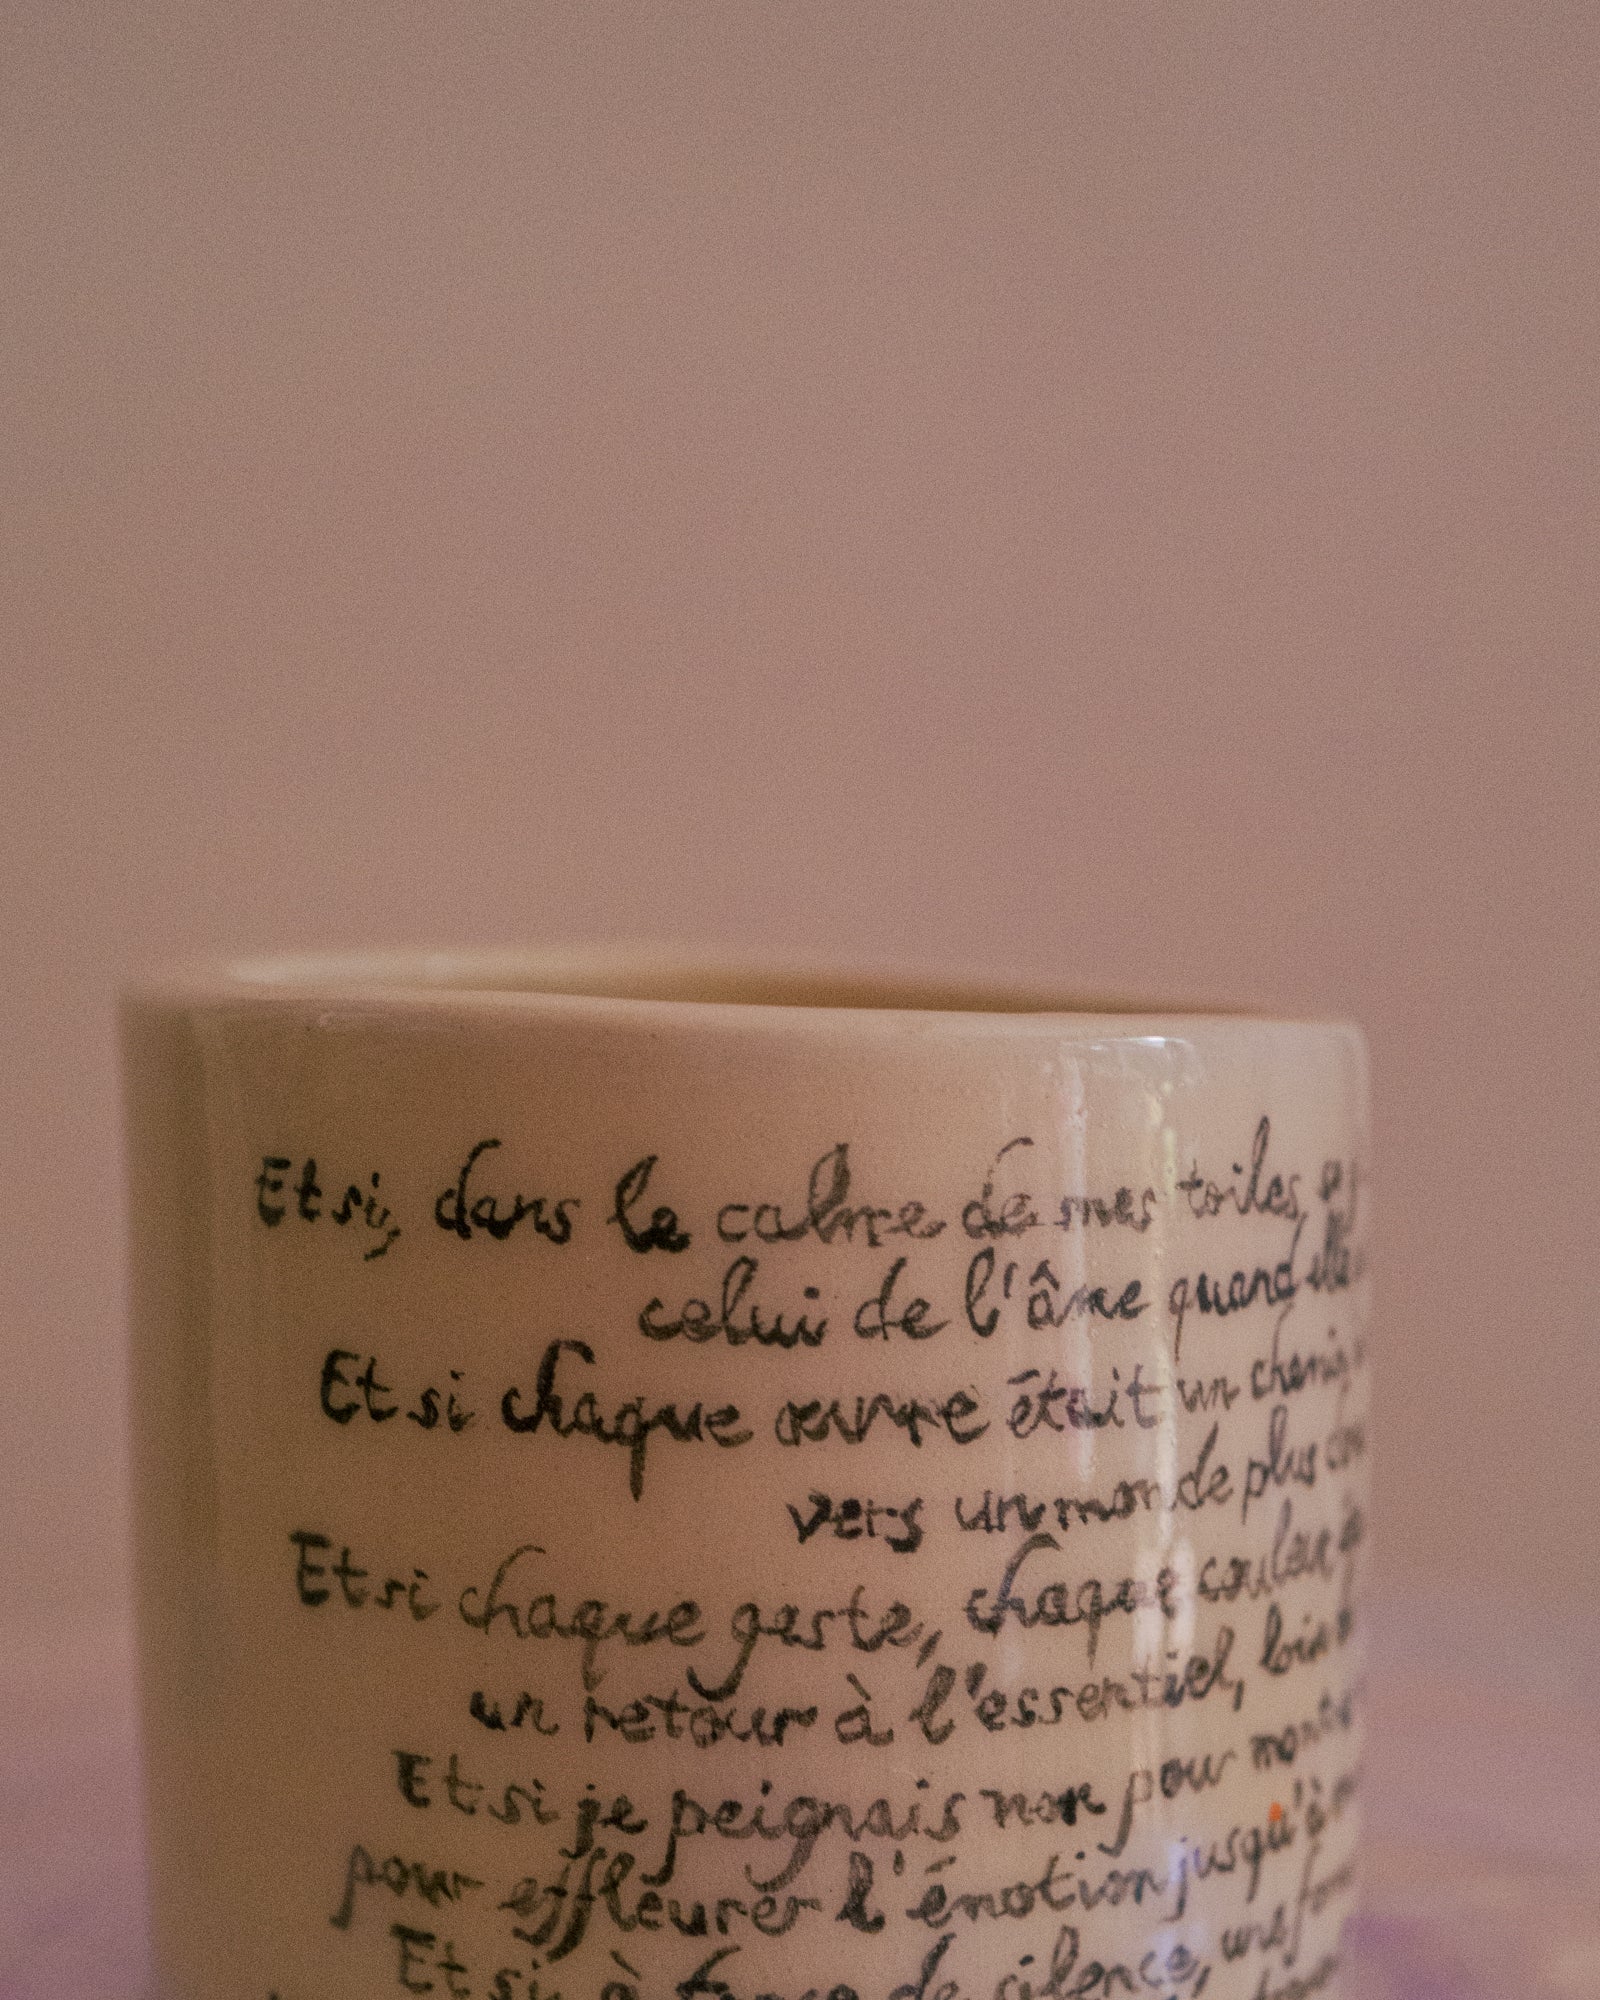 Et si, dans le calme de mes toiles,
celui de l'âme quand elle
Et si chaque œuvre était un chemin
vers un monde plus
Et si chaque geste, chaque couleur
un retour à l'essentiel, loin
Et si je peignais non pour montrer
pour effleurer l'émotion jusqu'à
Et si, à force de silence, une